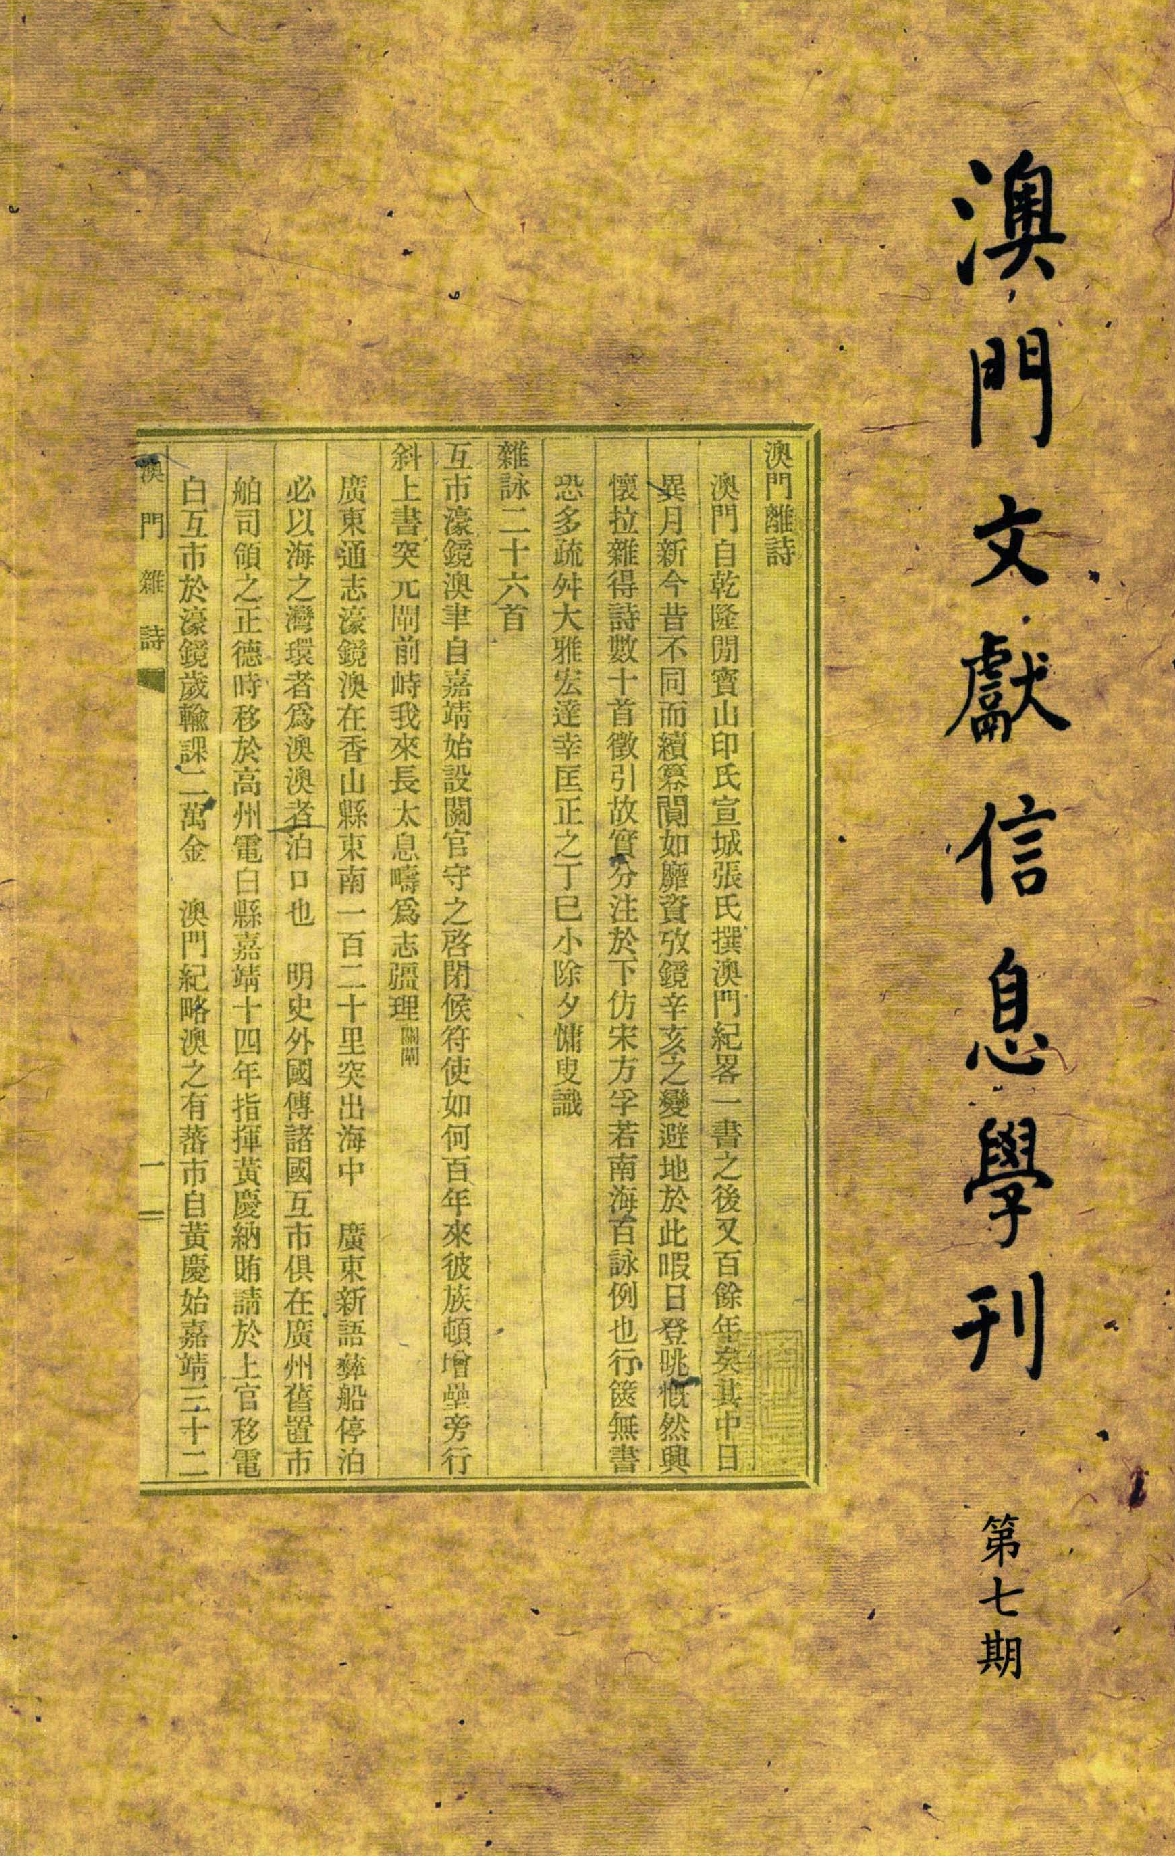 澳門文獻信息學刊
第七期
澳門雜詩
澳門自乾隆閒寶山印氏宣城張氏撰澳門紀畧一書之後又百餘年矣其中日
異月新今昔不同而續纂闃如靡資攷鏡辛亥之變避地於此暇日登眺慨然興
懷拉雜得詩數十首徵引故實分注於下仿宋方孚若南海百詠例也行篋無書
恐多疏舛大雅宏達幸匡正之丁巳小除夕慵叟識
雜詠二十六首
互市濠鏡澳聿自嘉靖始設關官守之啓閉候符使如何百年來彼族頓增壘旁行
斜上書突兀閘前峙我來長太息疇爲志疆理關閘
廣東通志濠鏡澳在香山縣東南一百二十里突出海中　廣東新語彝船停泊
必以海之灣環者爲澳澳者泊口也　明史外國傳諸國互市俱在廣州舊置市
舶司領之正德時移於高州電白縣嘉靖十四年指揮黃慶納賄請於上官移電
白互市於濠鏡歲輸課二萬金　澳門紀略澳之有蕃市自黃慶始嘉靖三十二
澳門雜詩
一